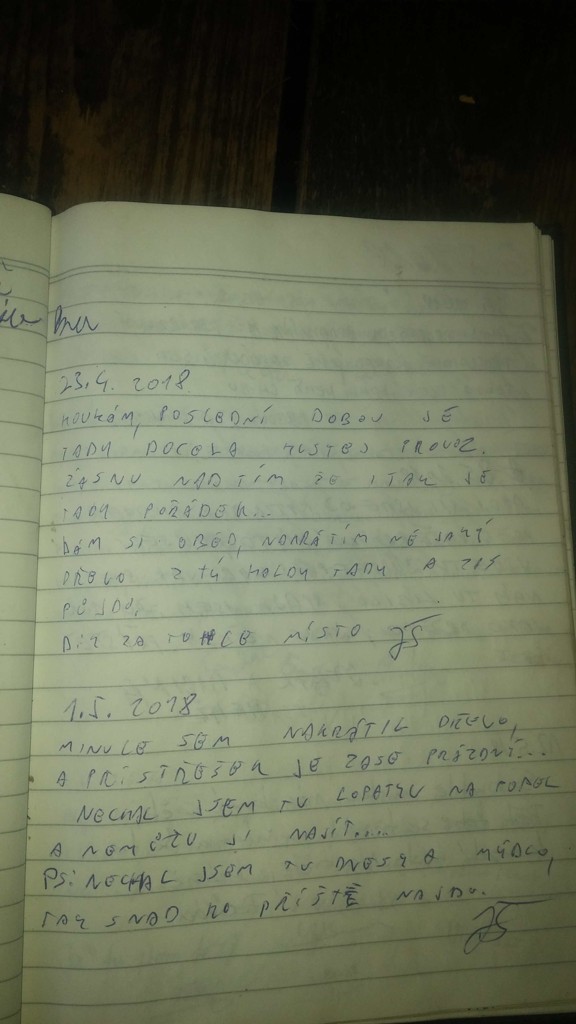 23.4. 2018
KOUKÁM, POSLEDNÍ DOBOU JE
TADY DOCELA HUSTEJ PROVOZ.
ŽASNU NAD TÍM ŽE I TAK JE
TADY POŘÁDEK...
DÁM SI OBĚD, NAKRÁTÍM NĚJAKÝ
DŘEVO Z TÝ HALDY TADY A ZAS
PŮJDU.
DÍK ZA TOHLE MÍSTO JS
1.5. 2018
MINULE SEM NAKRÁTIL DŘEVO,
A PŘÍSTŘEŠEK JE ZASE PRÁZDNÝ...
NECHAL JSEM TU LOPATKU NA POPEL
A NEMŮŽU JI NAJÍT....
PS: NECHAL JSEM TU DNESKA MÝDLO,
TAK SNAD HO PŘÍŠTĚ NAJDU.
JS